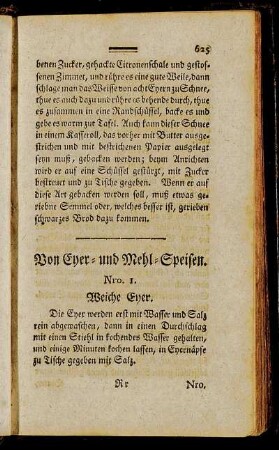 625
benen Zucker, gehackte Citronenschale und gestos-
senen Zimmet, und rühre es eine gute Weile, dann
schlage man das Weisse von acht Eyern zu Schnee,
thue es auch dazu und rühre es behende durch, thue
es zusammen in eine Randschüssel, backe es und
gebe es warm zur Tafel. Auch kann dieser Schnee
in einem Kasseroll, das vorher mit Butter ausge-
strichen und mit bestrichenen Papier ausgelegt
seyn muß, gebacken werden; beym Anrichten
wird er auf eine Schüssel gestürzt, mit Zucker
bestreuet und zu Tische gegeben. Wenn er auf
diese Art gebacken worden soll, muß etwas ge-
riebne Semmel oder, welches besser ist, gerieben
schwarzes Brod dazu kommen.
Von Eyer- und Mehl-Speisen.
Nro. 1.
Weiche Eyer.
Die Eyer werden erst mit Wasser und Salz
rein abgewaschen, dann in einen Durchschlag
mit einem Stiehl in kochendes Wasser gehalten,
und einige Minuten kochen lassen, in Eyernäpfe
zu Tische gegeben mit Salz.
Rr
Nro.